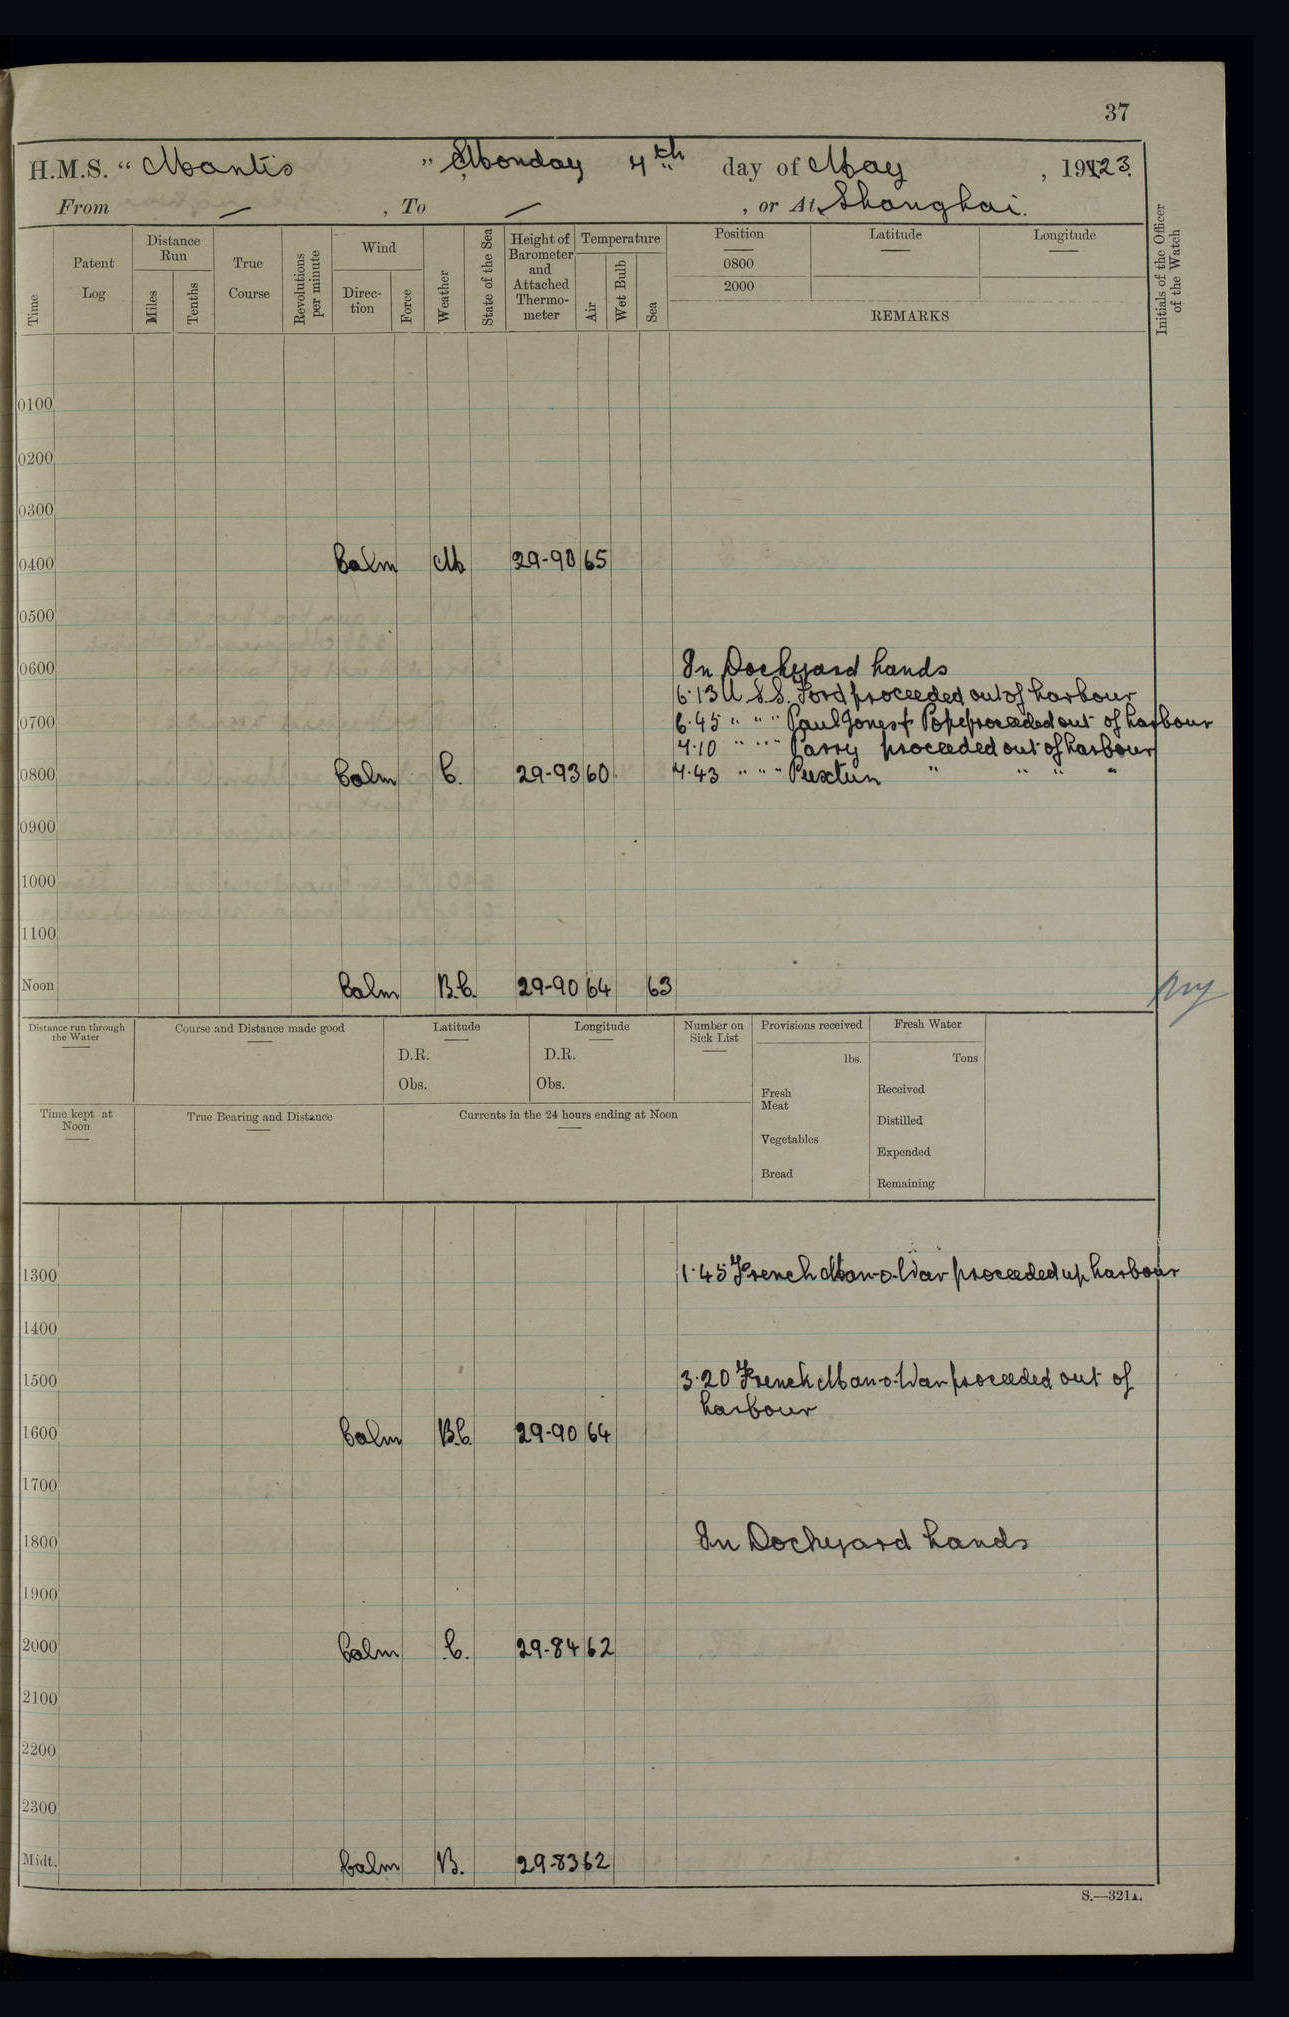 37
H.M.S. “ Mantis ” Monday 7th day of May , 1923.
From — , To — , or At Shanghai.
Time
Patent Log
Distance Run
Miles
Tenths
True Course
Revolutions per minute
Wind
Direc-tion
Force
Weather
State of the Sea
Height of Barometer and Attached Thermo-meter
Temperature
Air
Wet Bulb
Sea
Position
0800
2000
Latitude
Longitude
REMARKS
Initials of the Officer of the Watch
0100
0200
0300
0400 Calm M 29-90 65
0500
0600 In Dockyard hands
6.13 U.S.S. Ford proceeded out of harbour
0700 6.45 " " " Paul Jones & Pope proceeded out of harbour
7.10 " " " Parry proceeded out of harbour
0800 Calm C. 29-93 60 7.43 " " " " " " "
0900
1000
1100
Noon Calm B.C. 29-90 64 63
Distance run through the Water
Course and Distance made good
Latitude
D.R.
Obs.
Longitude
D.R.
Obs.
Number on Sick List
Provisions received
lbs.
Fresh Meat
Vegetables
Bread
Fresh Water
Tons
Received
Distilled
Expended
Remaining
Time kept at Noon
True Bearing and Distance
Currents in the 24 hours ending at Noon
1300 1.45 French Man-o-War proceeded up harbour
1400
1500 3.20 French Man-o-War proceeded out of
harbour
1600 Calm B.C. 29-90 64
1700
1800 In Dockyard hands
1900
2000 Calm C. 29-84 62
2100
2200
2300
Midt. Calm B. 29-83 62
S.—321A.